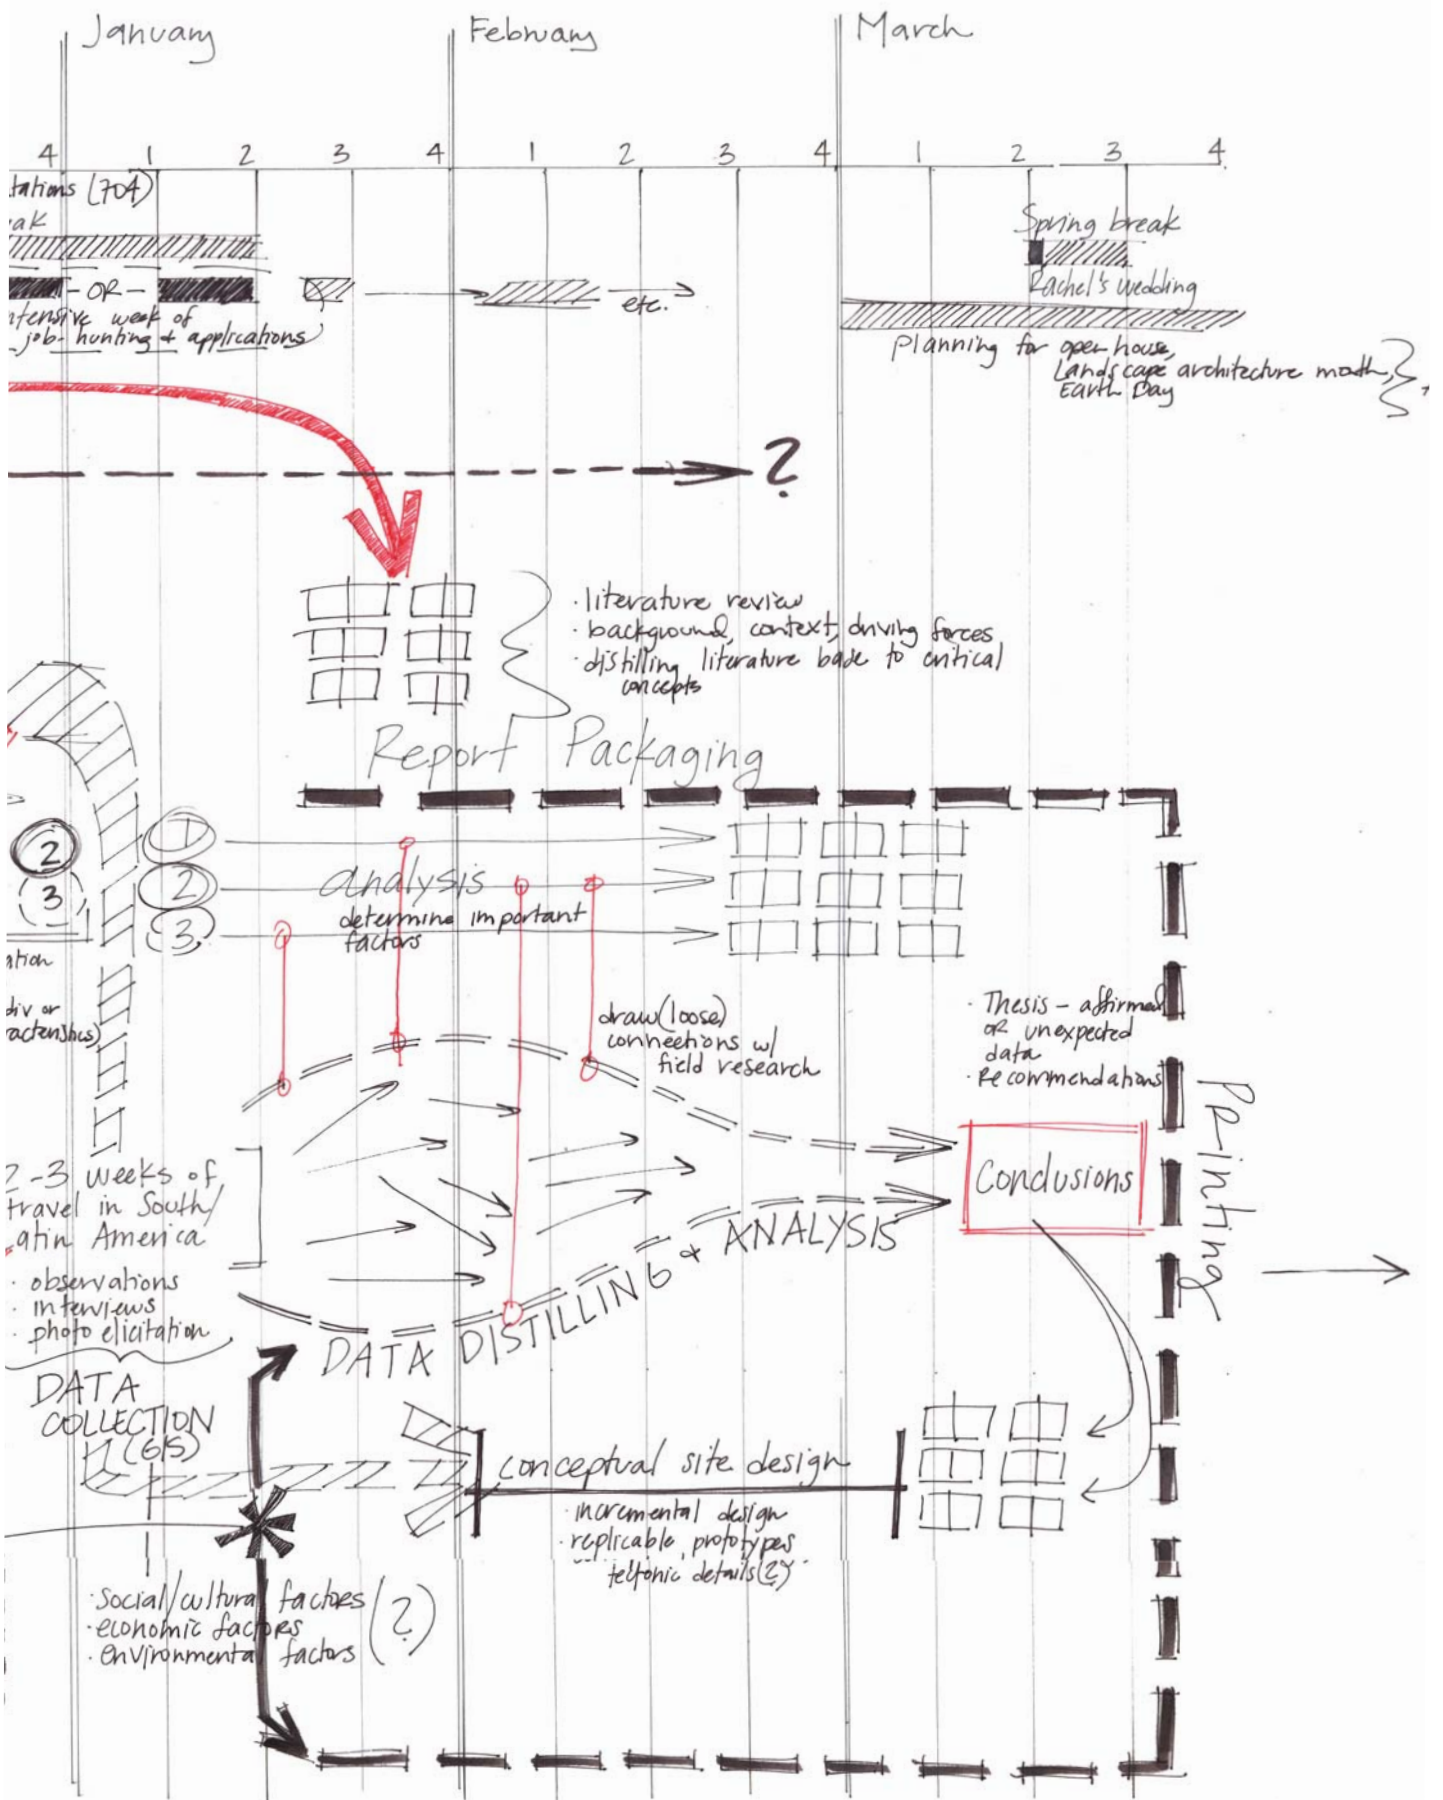 January
February
March
4 1 2 3 4 1 2 3 4 1 2 3 4
tations (704)
ak
- OR -
ntensive week of
job-hunting + applications
etc.
Spring break
Rachel's wedding
Planning for open house,
Landscape architecture month,
Earth Day
?
· literature review
· background, context, driving forces
· distilling literature back to critical
concepts
Report Packaging
2
3
1
2
3
analysis
determine important
factors
ation
div or
racteristics)
draw (loose)
connections w/
field research
· Thesis - affirmed
OR unexpected
data
· Recommendations
Conclusions
Printing
2-3 weeks of
travel in South/
Latin America
· observations
· interviews
· photo elicitation
DATA
COLLECTION
(GIS)
DATA DISTILLING + ANALYSIS
conceptual site design
· incremental design
· replicable prototypes
tectonic details (?)
· social/cultural factors
· economic factors
· environmental factors
(?)